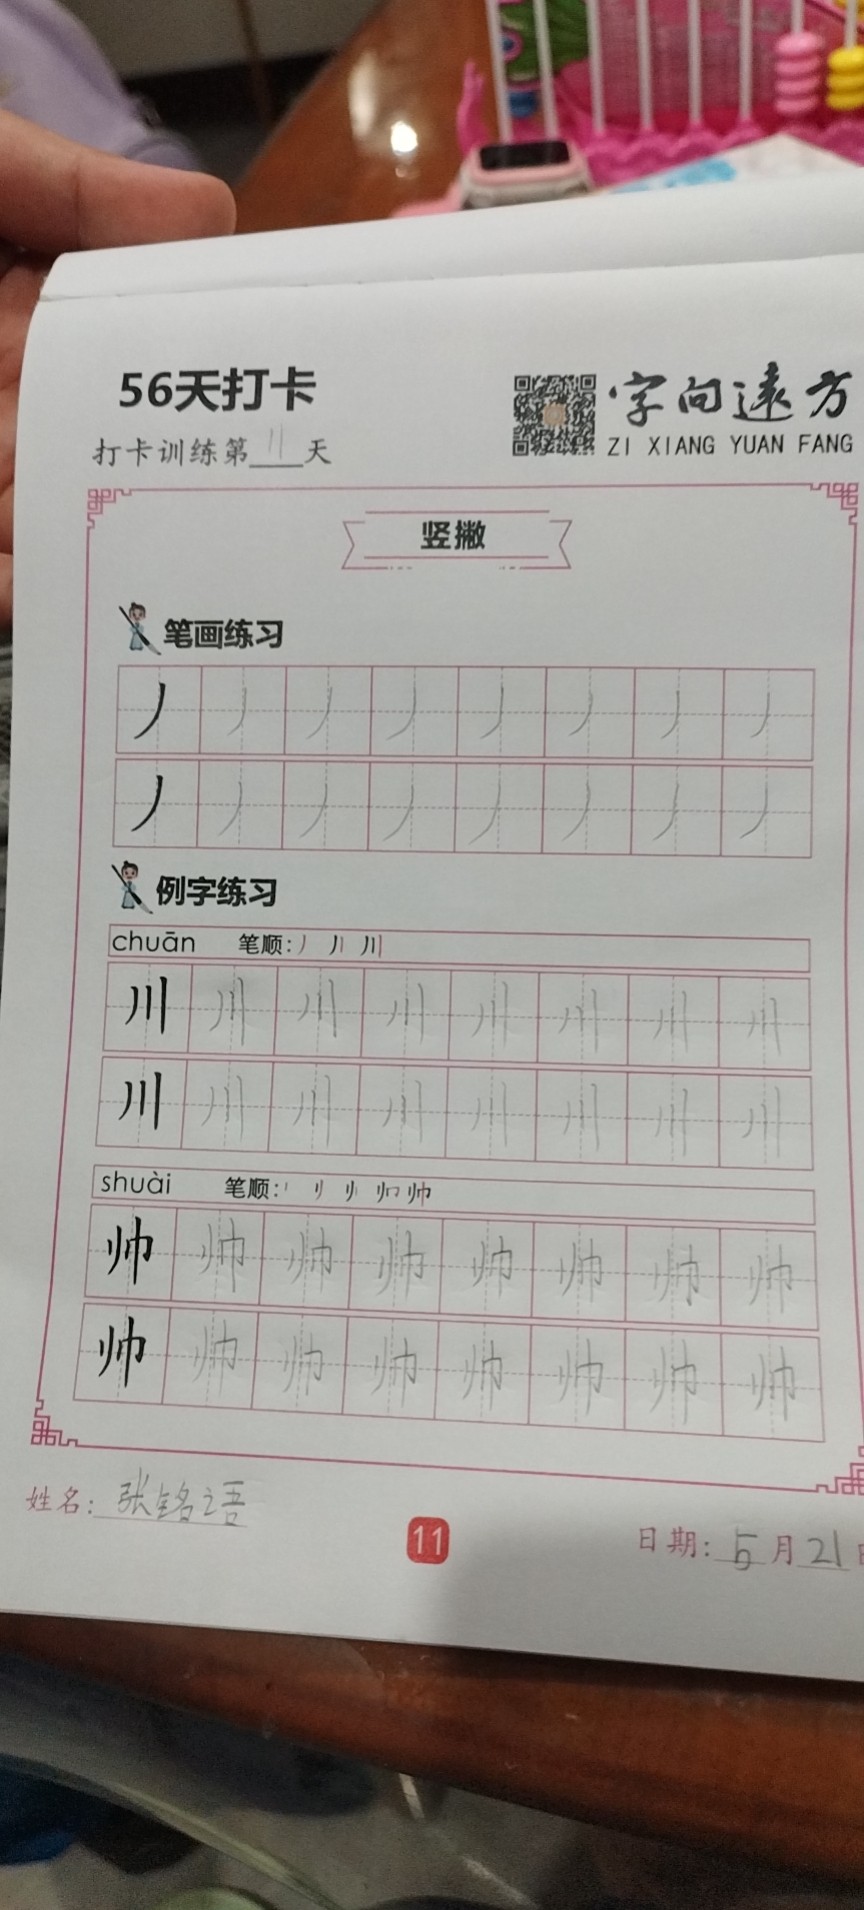 56天打卡
字向远方
ZI XIANG YUAN FANG
打卡训练第11天
竖撇
笔画练习
丿 丿 丿 丿 丿 丿 丿 丿
丿 丿 丿 丿 丿 丿 丿 丿
例字练习
chuān 笔顺:丿 丿丨 川
川 川 川 川 川 川 川 川
川 川 川 川 川 川 川 川
shuài 笔顺:
帅 帅 帅 帅 帅 帅 帅 帅
帅 帅 帅 帅 帅 帅 帅 帅
姓名:张铭语
11
日期:5月21日